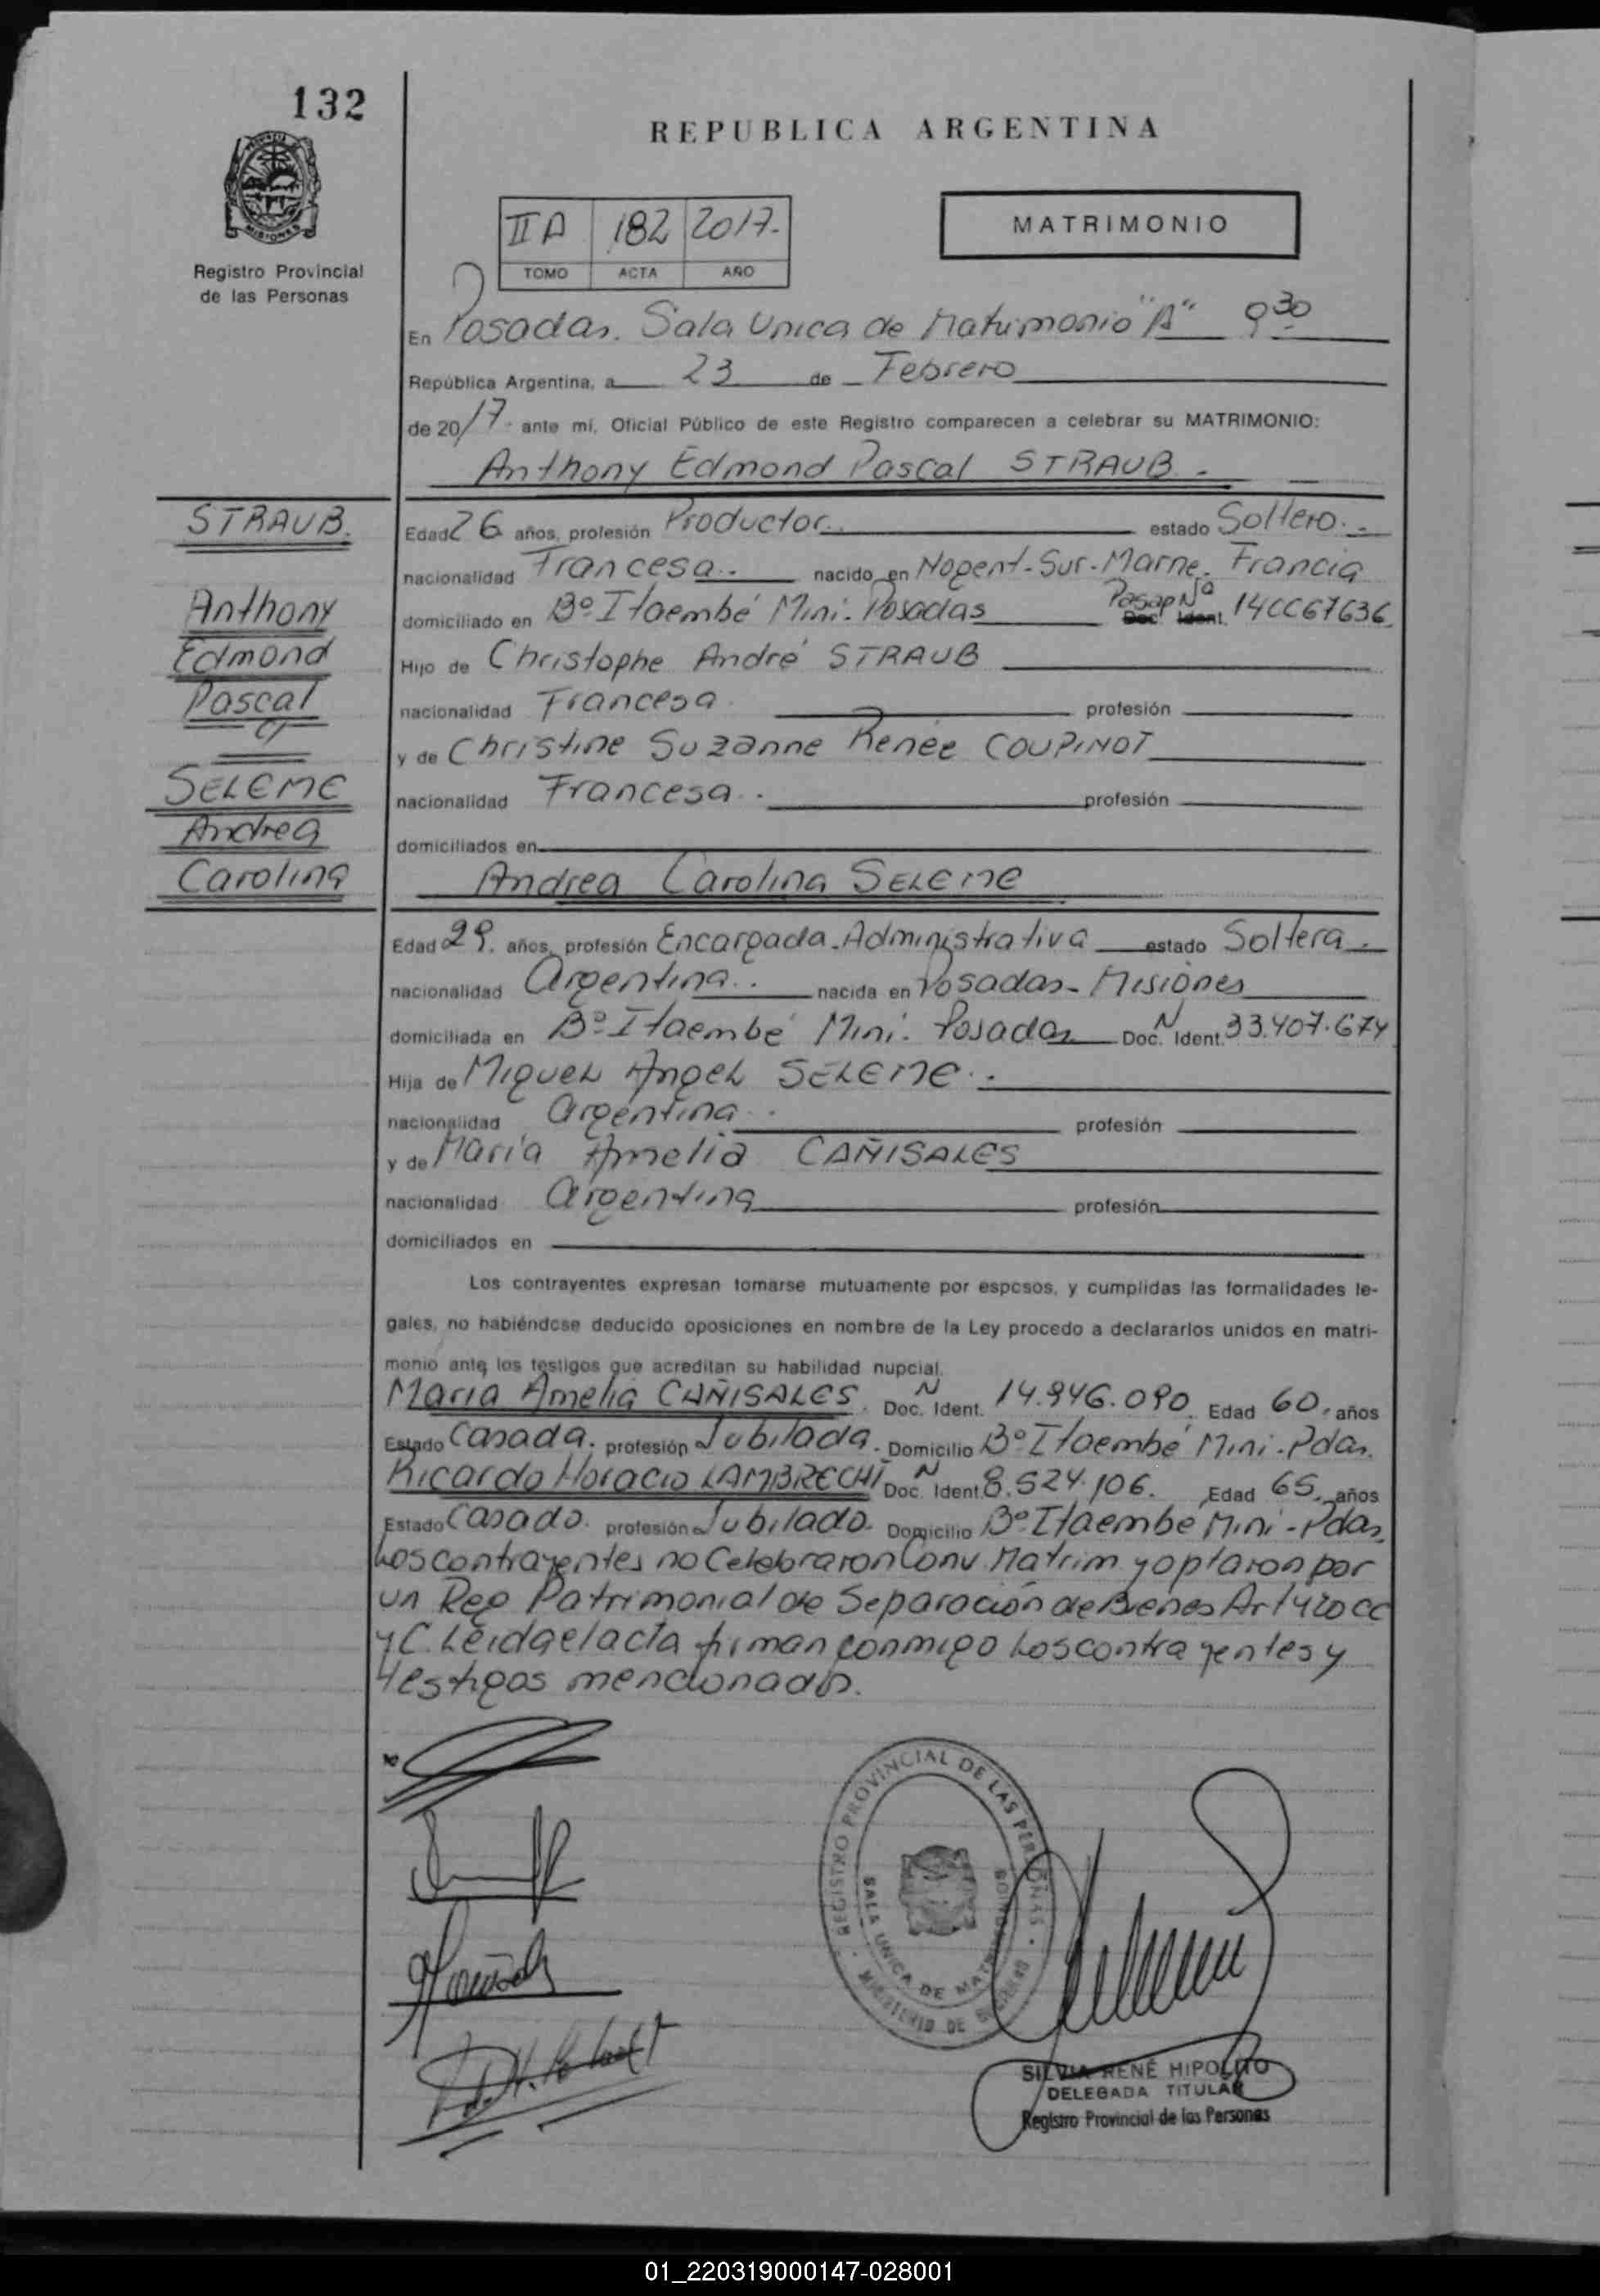 132
REPUBLICA ARGENTINA
MISIONES
Registro Provincial
de las Personas
II A 182 2017.
TOMO ACTA AÑO
MATRIMONIO
En Posadas. Sala Unica de Matrimonio "A" 9 30
República Argentina, a 23 de Febrero
de 20/17 ante mí, Oficial Público de este Registro comparecen a celebrar su MATRIMONIO:
Anthony Edmond Pascal STRAUB.
STRAUB.
Anthony
Edmond
Pascal
y
SELEME
Andrea
Carolina
Edad 26 años, profesión Productor. estado Soltero.
nacionalidad Francesa. nacido en Nogent-Sur-Marne. Francia
domiciliado en Bº Itaembé Mini. Posadas Pasap Nº Doc. Ident. 14CC67636
Hijo de Christophe André STRAUB
nacionalidad Francesa. profesión
y de Christine Suzanne Renée COUPINOT
nacionalidad Francesa. profesión
domiciliados en
Andrea Carolina SELEME
Edad 29. años, profesión Encargada Administrativa estado Soltera.
nacionalidad Argentina. nacida en Posadas-Misiones
domiciliada en Bº Itaembé Mini. Posadas Doc. N Ident. 33.407.674
Hija de Miguel Angel SELEME.
nacionalidad Argentina. profesión
y de María Amelia CAÑISALES
nacionalidad Argentina profesión
domiciliados en
Los contrayentes expresan tomarse mutuamente por esposos, y cumplidas las formalidades le-
gales, no habiéndose deducido oposiciones en nombre de la Ley procedo a declararlos unidos en matri-
monio ante los testigos que acreditan su habilidad nupcial.
María Amelia CAÑISALES. Doc. N Ident. 14.946.090. Edad 60. años
Estado Casada. profesión Jubilada. Domicilio Bº Itaembé Mini-Pdas.
Ricardo Horacio LAMBRECHT Doc. N Ident. 8.524.106. Edad 65. años
Estado Casado. profesión Jubilado. Domicilio Bº Itaembé Mini-Pdas.
Los contrayentes no Celebraron Conv. Matrim. y optaron por
un Reg Patrimonial de Separación de Bienes Art 420 CC
y C. Leida el acta firman conmigo Los contrayentes y
testigos mencionados.
REGISTRO PROVINCIAL DE LAS PERSONAS
SALA UNICA DE MATRIMONIOS
MINISTERIO DE GOBIERNO
SILVIA RENÉ HIPOLITO
DELEGADA TITULAR
Registro Provincial de las Personas
01_220319000147-028001